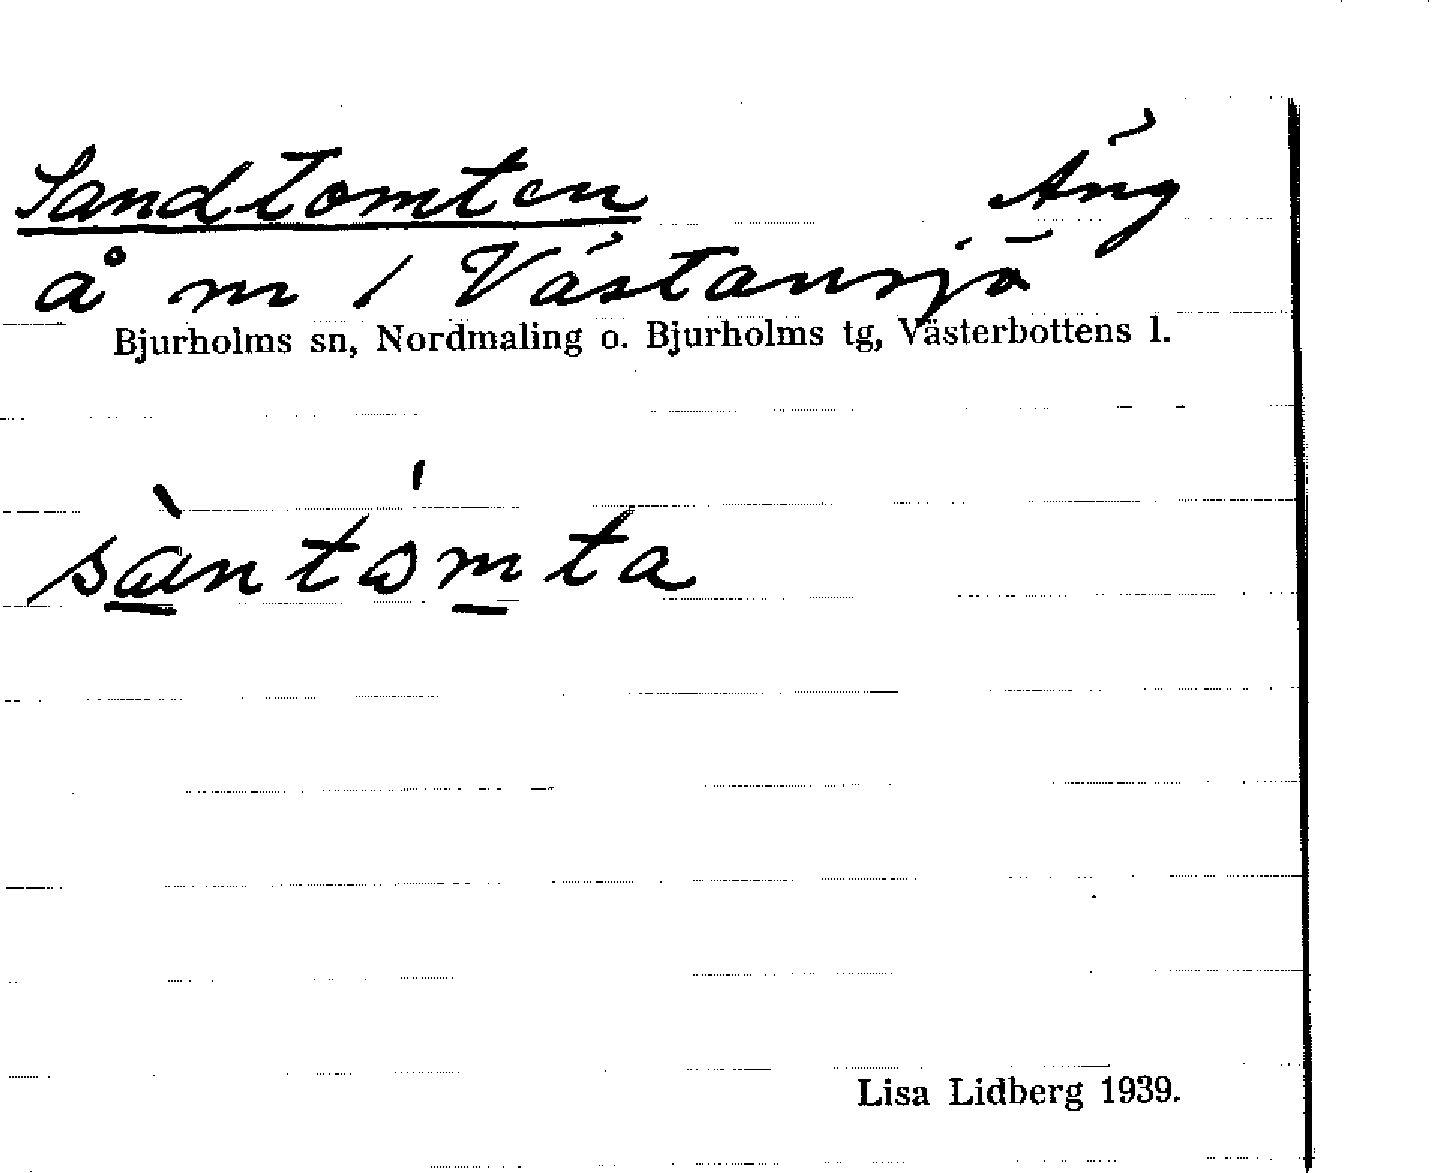 Sandtomten Äng
å m / Västansjö
Bjurholms sn, Nordmaling o. Bjurholms tg, Västerbottens l.
sàntómta
Lisa Lidberg 1939.